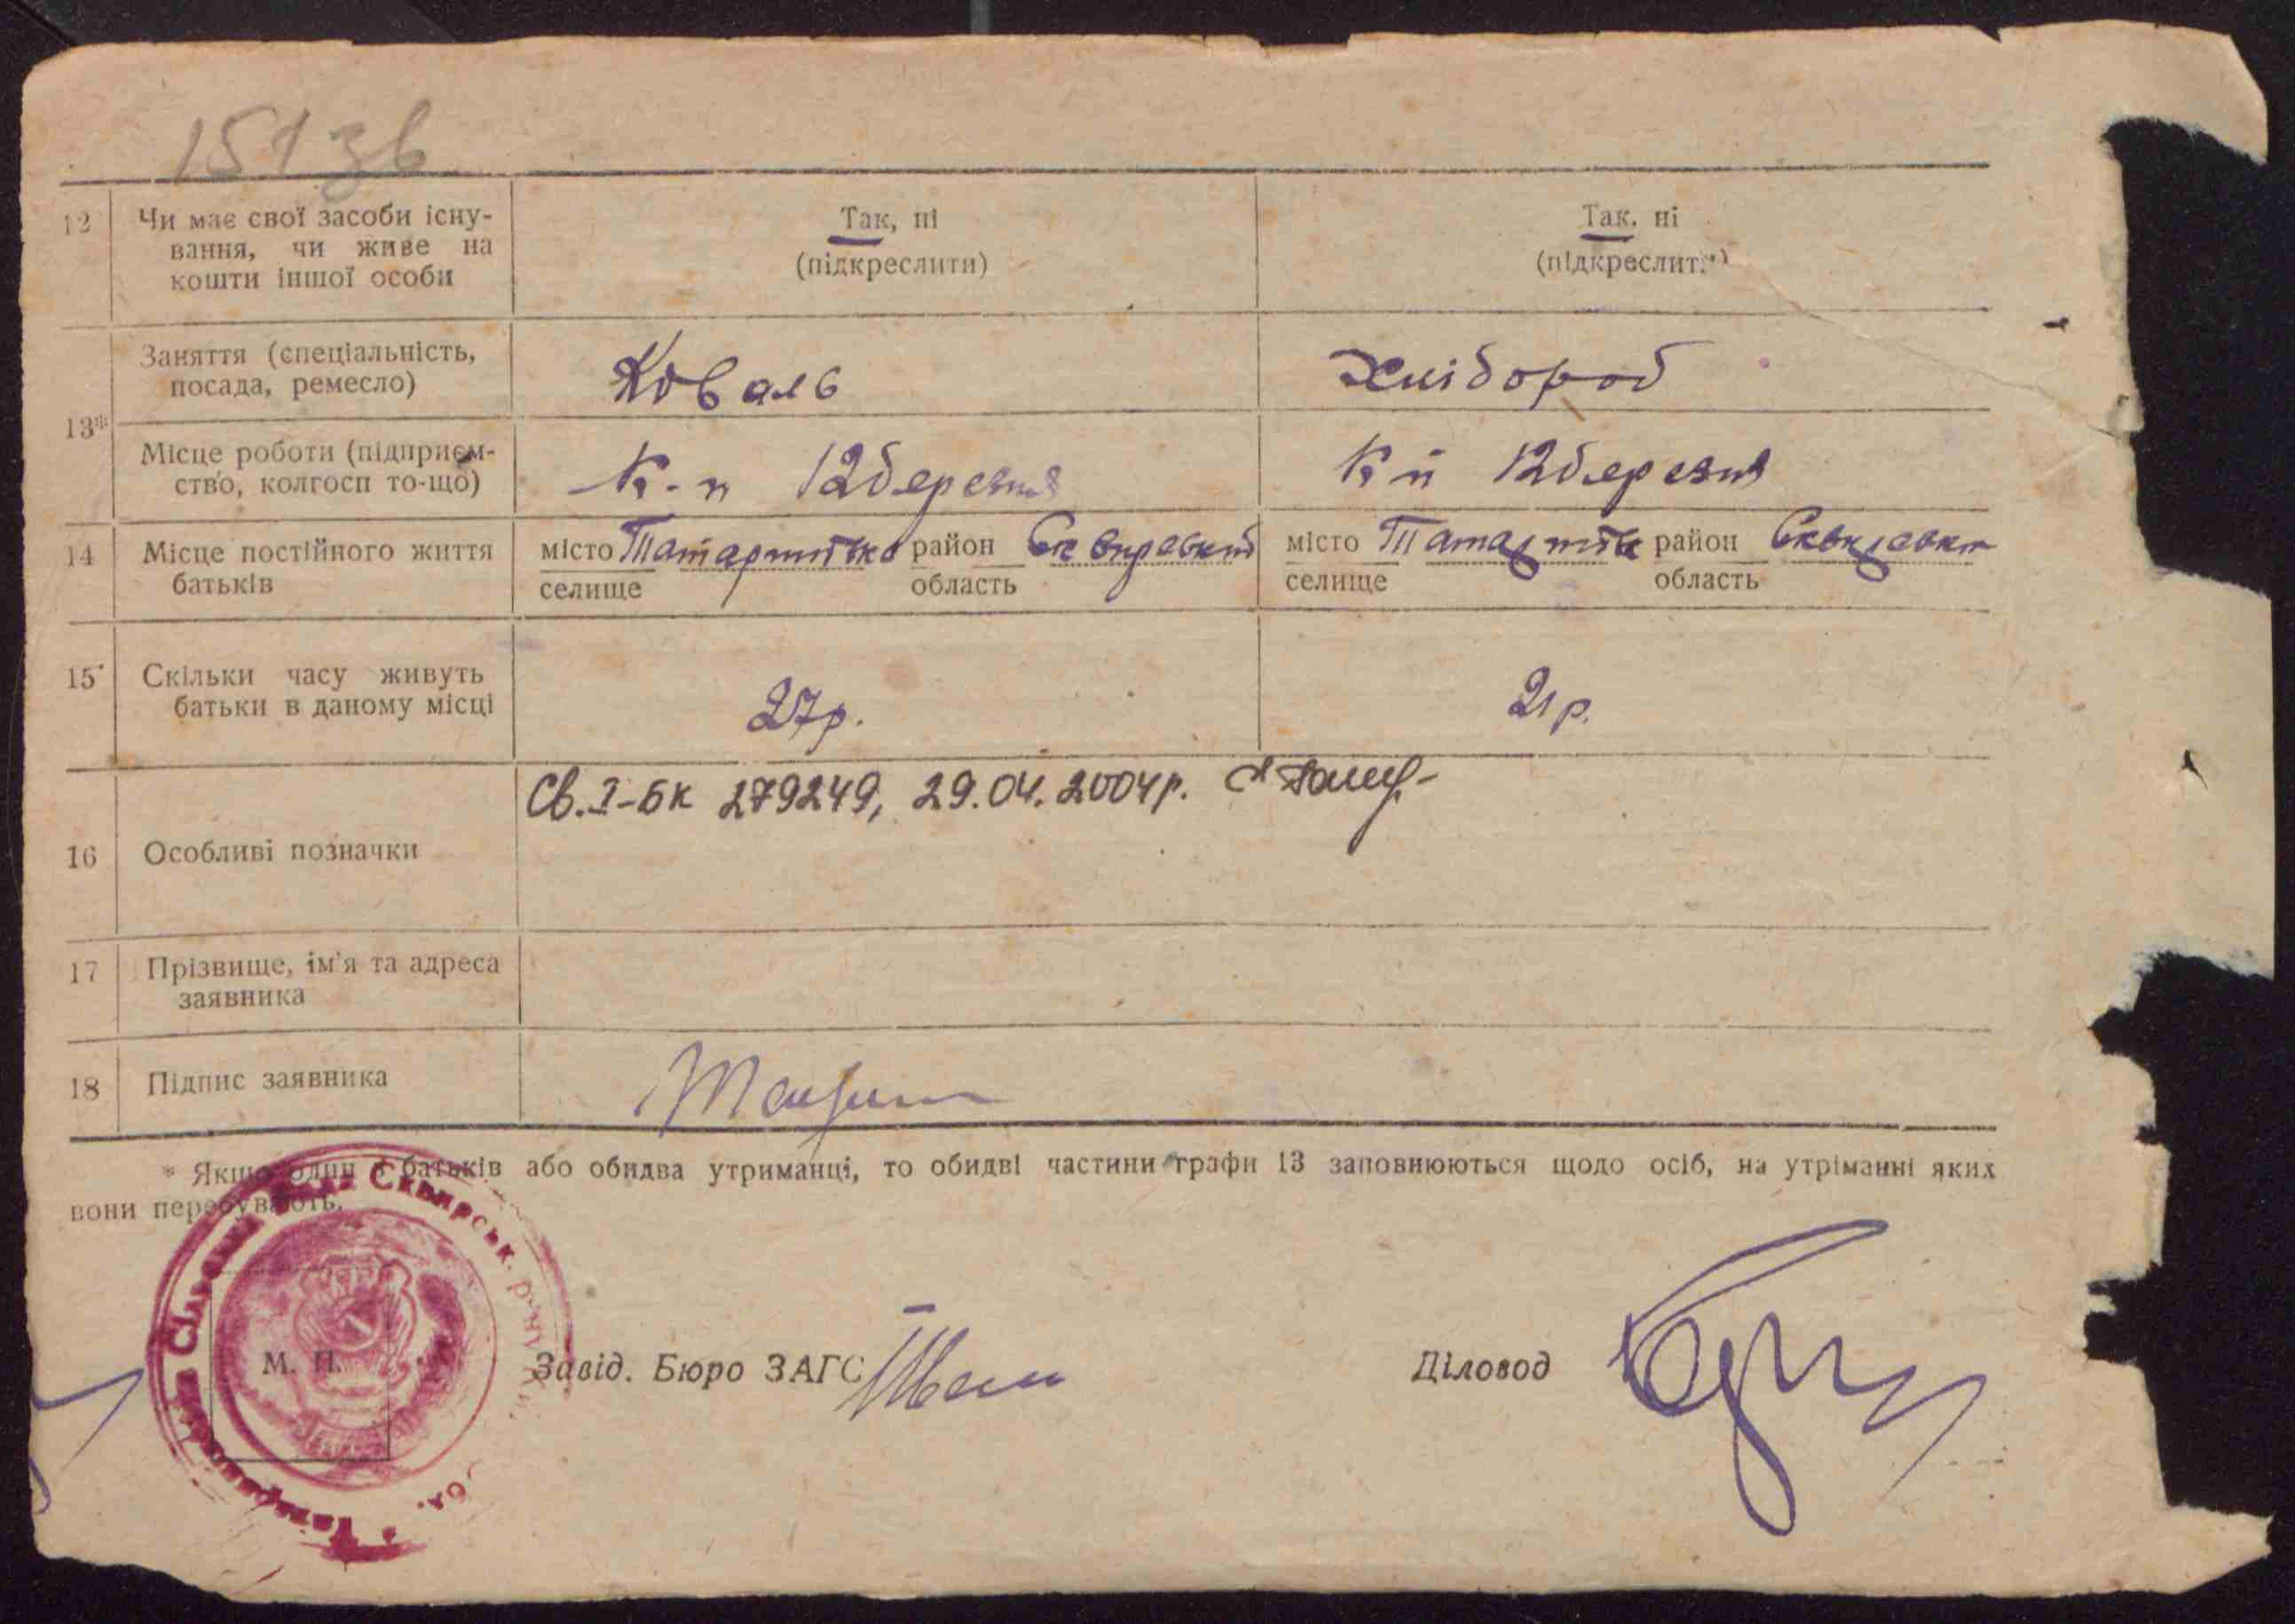 151 зв
12 Чи має свої засоби існу-
вання, чи живе на
кошти іншої особи
Так, ні
(підкреслити)
Так, ні
(підкреслити)
13* Заняття (спеціальність,
посада, ремесло)
Коваль
Хлібороб
Місце роботи (підприєм-
ство, колгосп то-що)
К-п 12 березня
К п 12 березня
14 Місце постійного життя
батьків
місто район Сквирський
селище область
місто район
селище область
15* Скільки часу живуть
батьки в даному місці
27р.
21р.
16 Особливі позначки
Св. I-БК 279249, 29.04.2004р.
17 Прізвище, ім'я та адреса
заявника
18 Підпис заявника
* Якщо один з батьків або обидва утриманці, то обидві частини графи 13 заповнюються щодо осіб, на утріманні яких
вони перебувають.
Сквирськ.
М. П.
Завід. Бюро ЗАГС
Діловод